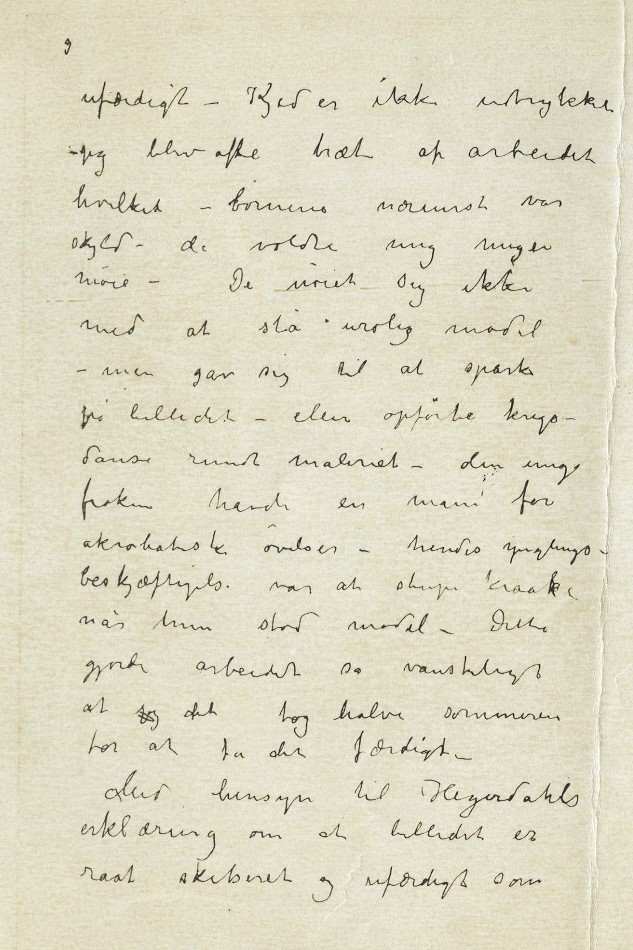 9
ufærdigt – Kjed er ikke udtrykket
– jeg blev ofte træt af arbeidet
hvilket – börnene nærmest var
skyld – de voldte mig megen
møie – De nöiet sig ikke
med at stå urolig model
– men gav sig til at sparke
på billedet – eller opförte krigs-
danse rundt maleriet – den unge
frøken havde en mani for
akrobatiske övelser – hendes ynglings-
beskjæftigelse var at stupe kraake
når hun stod model – Dette
gjorde arbeidet så vanskeligt
at det tog halve sommeren
for at få det færdigt –
Med hensyn til Heyerdahls
erklæring om at billedet er
raat skitseret og ufærdigt som